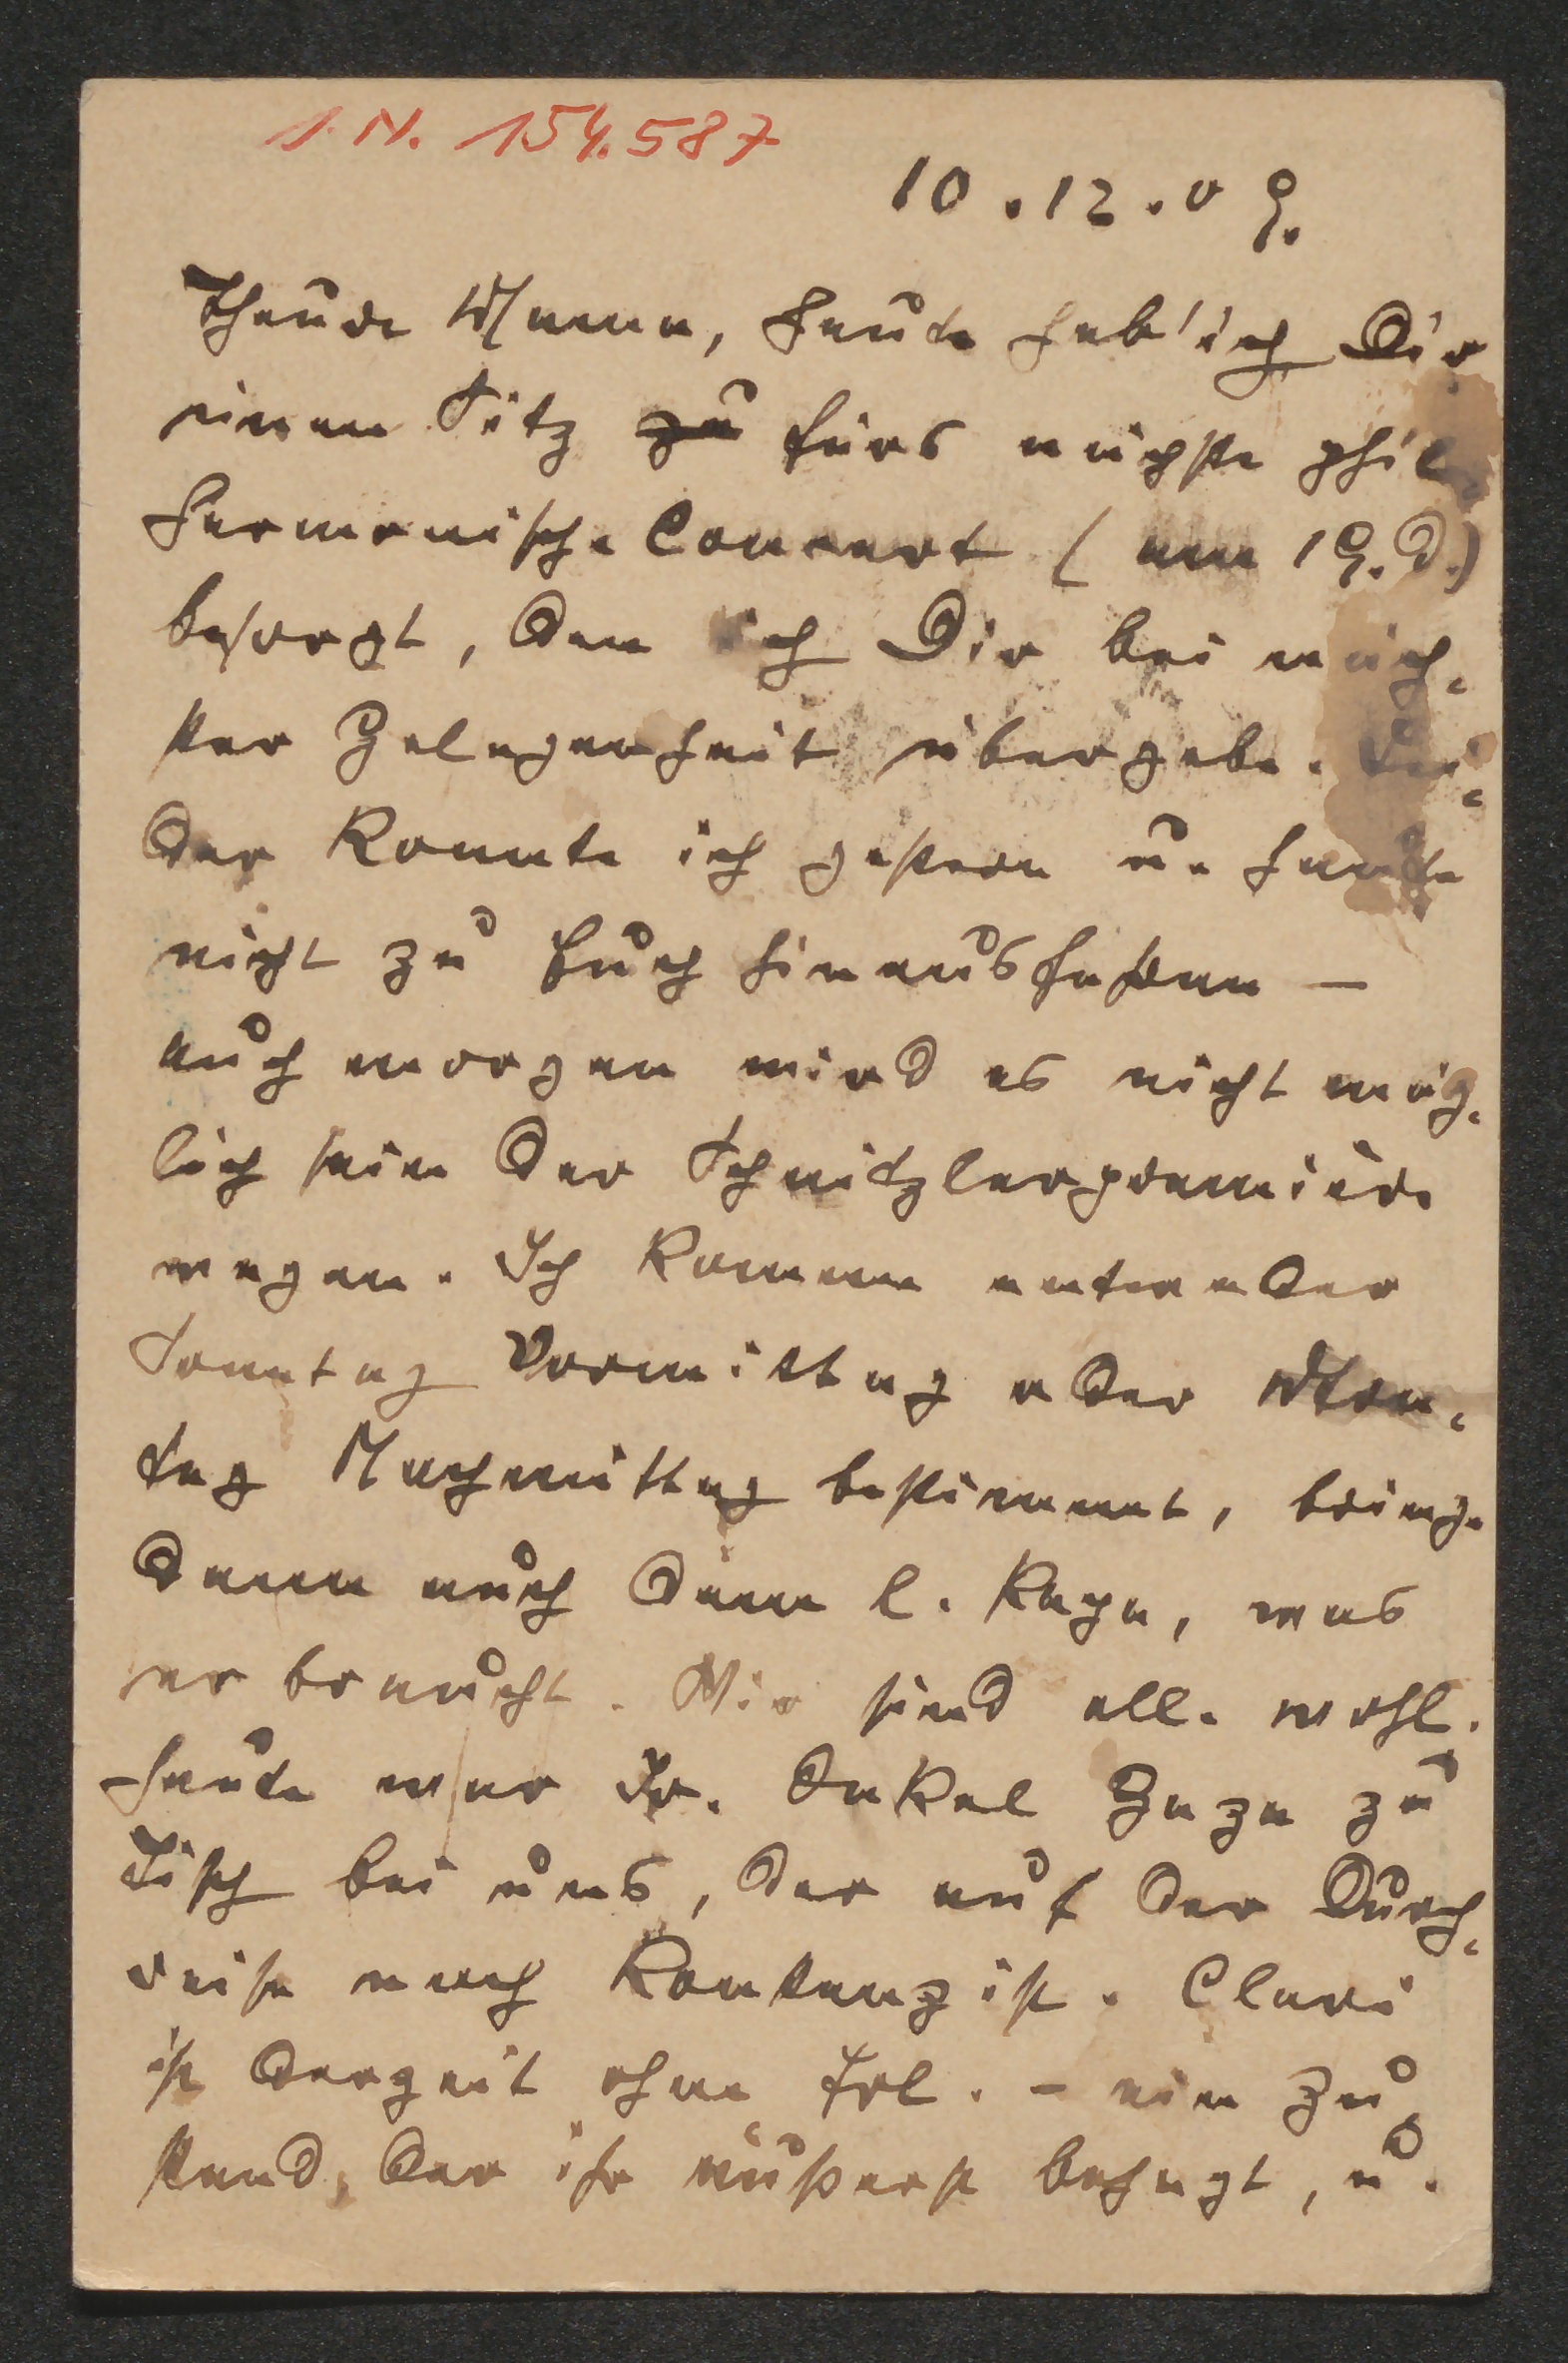 I. N. 154.587
10.12.09.
Theure Mama, heute hab' ich Dir
einen Sitz zu fürs nächste phil¬
harmonische Concert (am 19. d.)
besorgt, den ich Dir bei näch¬
ster Gelegenheit übergebe. Lei¬
der konnte ich gestern u. heute
nicht zu Euch hinausfahren –
auch morgen wird es nicht mög¬
lich sein der Schnitzlerpremière
wegen. Ich komme entweder
Sonntag Vormittag oder Mon¬
tag Nachmittag bestimmt, bringe
dann auch dem l. Papa, was
er braucht. Wir sind alle wohl.
Heute war Dr. Onkel Géza zu
Tisch bei uns, der auf der Durch¬
reise nach Konstanz ist. Clari
ist derzeit ohne Frl. – ein Zu¬
stand, der ihr äußerst behagt, u.